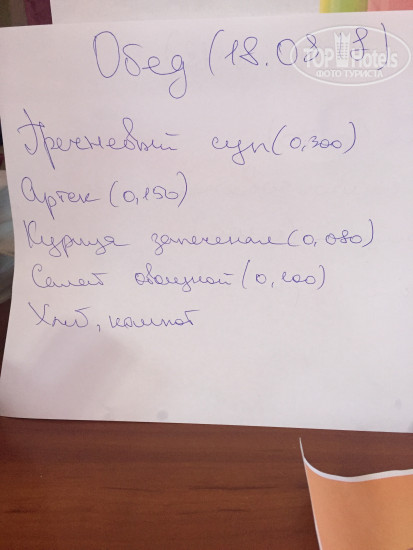 Обед (18.08 8)
TopHotels
ФОТО ТУРИСТА
Гречневый суп (0,300)
Артек (0,150)
Курица запеченая (0,080)
Салат овощной (0,100)
Хлеб, компот